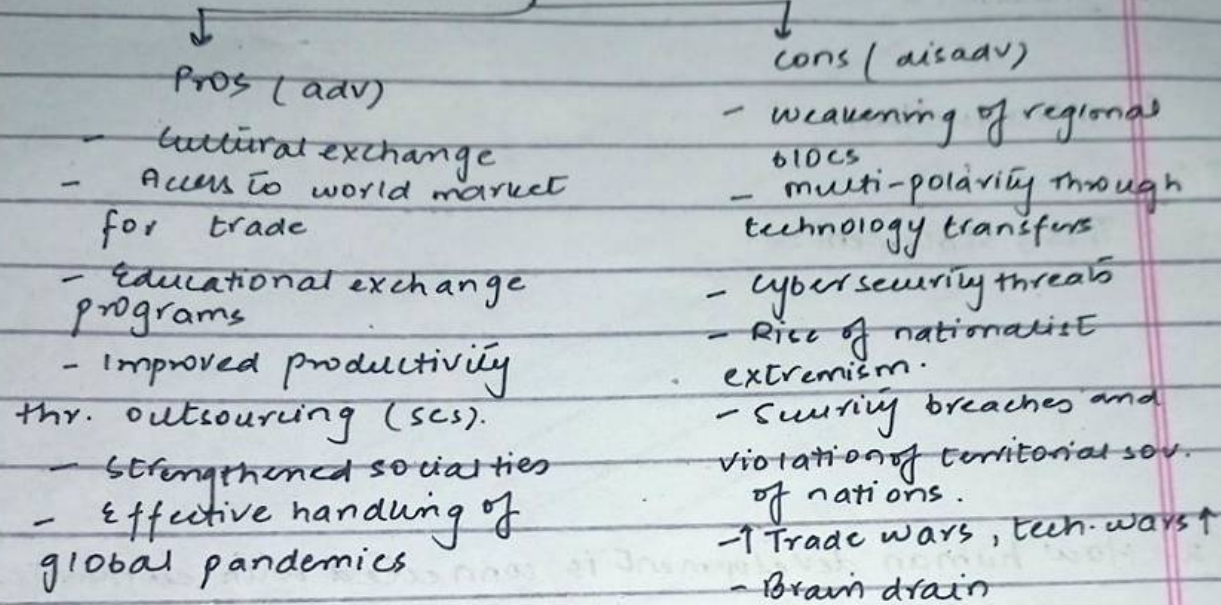 Pros (adv)
- Cultural exchange
- Access to world market
for trade
- Educational exchange
programs
- Improved productivity
thr. outsourcing (scs).
- Strengthened social ties
- Effective handling of
global pandemics
Cons (disadv)
- weakening of regional
blocs
- multi-polarity through
technology transfers
- cybersecurity threats
- Rise of nationalist
extremism.
- Security breaches and
violation of territorial sov.
of nations.
-↑ Trade wars, tech. wars ↑
- Brain drain